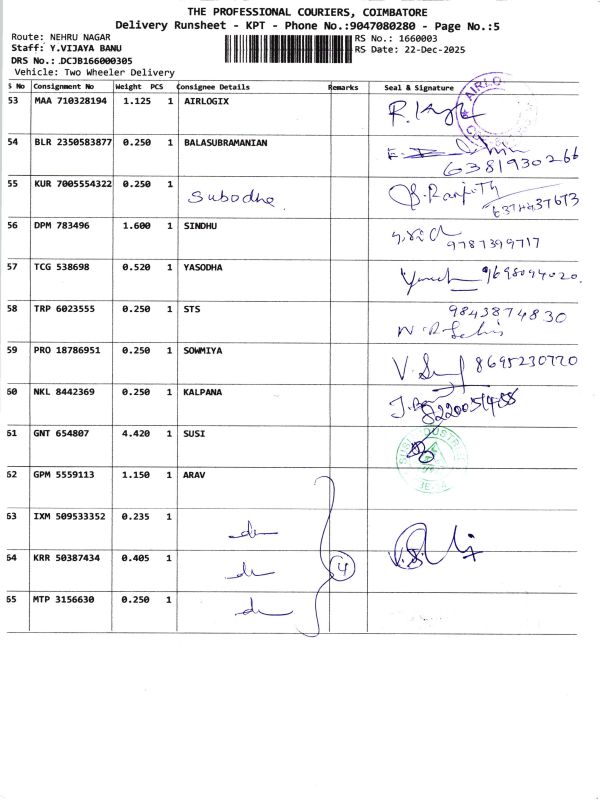 THE PROFESSIONAL COURIERS, COIMBATORE
Delivery Runsheet - KPT - Phone No.:9047080280 - Page No.:5
Route: NEHRU NAGAR RS No.: 1660003
Staff: Y.VIJAYA BANU RS Date: 22-Dec-2025
DRS No.: .DCJB166000305
Vehicle: Two Wheeler Delivery
S No Consignment No Weight PCS Consignee Details Remarks Seal & Signature
53 MAA 710328194 1.125 1 AIRLOGIX
54 BLR 2350583877 0.250 1 BALASUBRAMANIAN
6381930266
55 KUR 7005554322 0.250 1 Subodha
56 DPM 783496 1.600 1 SINDHU
9787399717
57 TCG 538698 0.520 1 YASODHA 9698094020
58 TRP 6023555 0.250 1 STS 9843874830
59 PRO 18786951 0.250 1 SOWMIYA 8695230770
60 NKL 8442369 0.250 1 KALPANA
61 GNT 654807 4.420 1 SUSI
62 GPM 5559113 1.150 1 ARAV
63 IXM 509533352 0.235 1
64 KRR 50387434 0.405 1 4
65 MTP 3156630 0.250 1